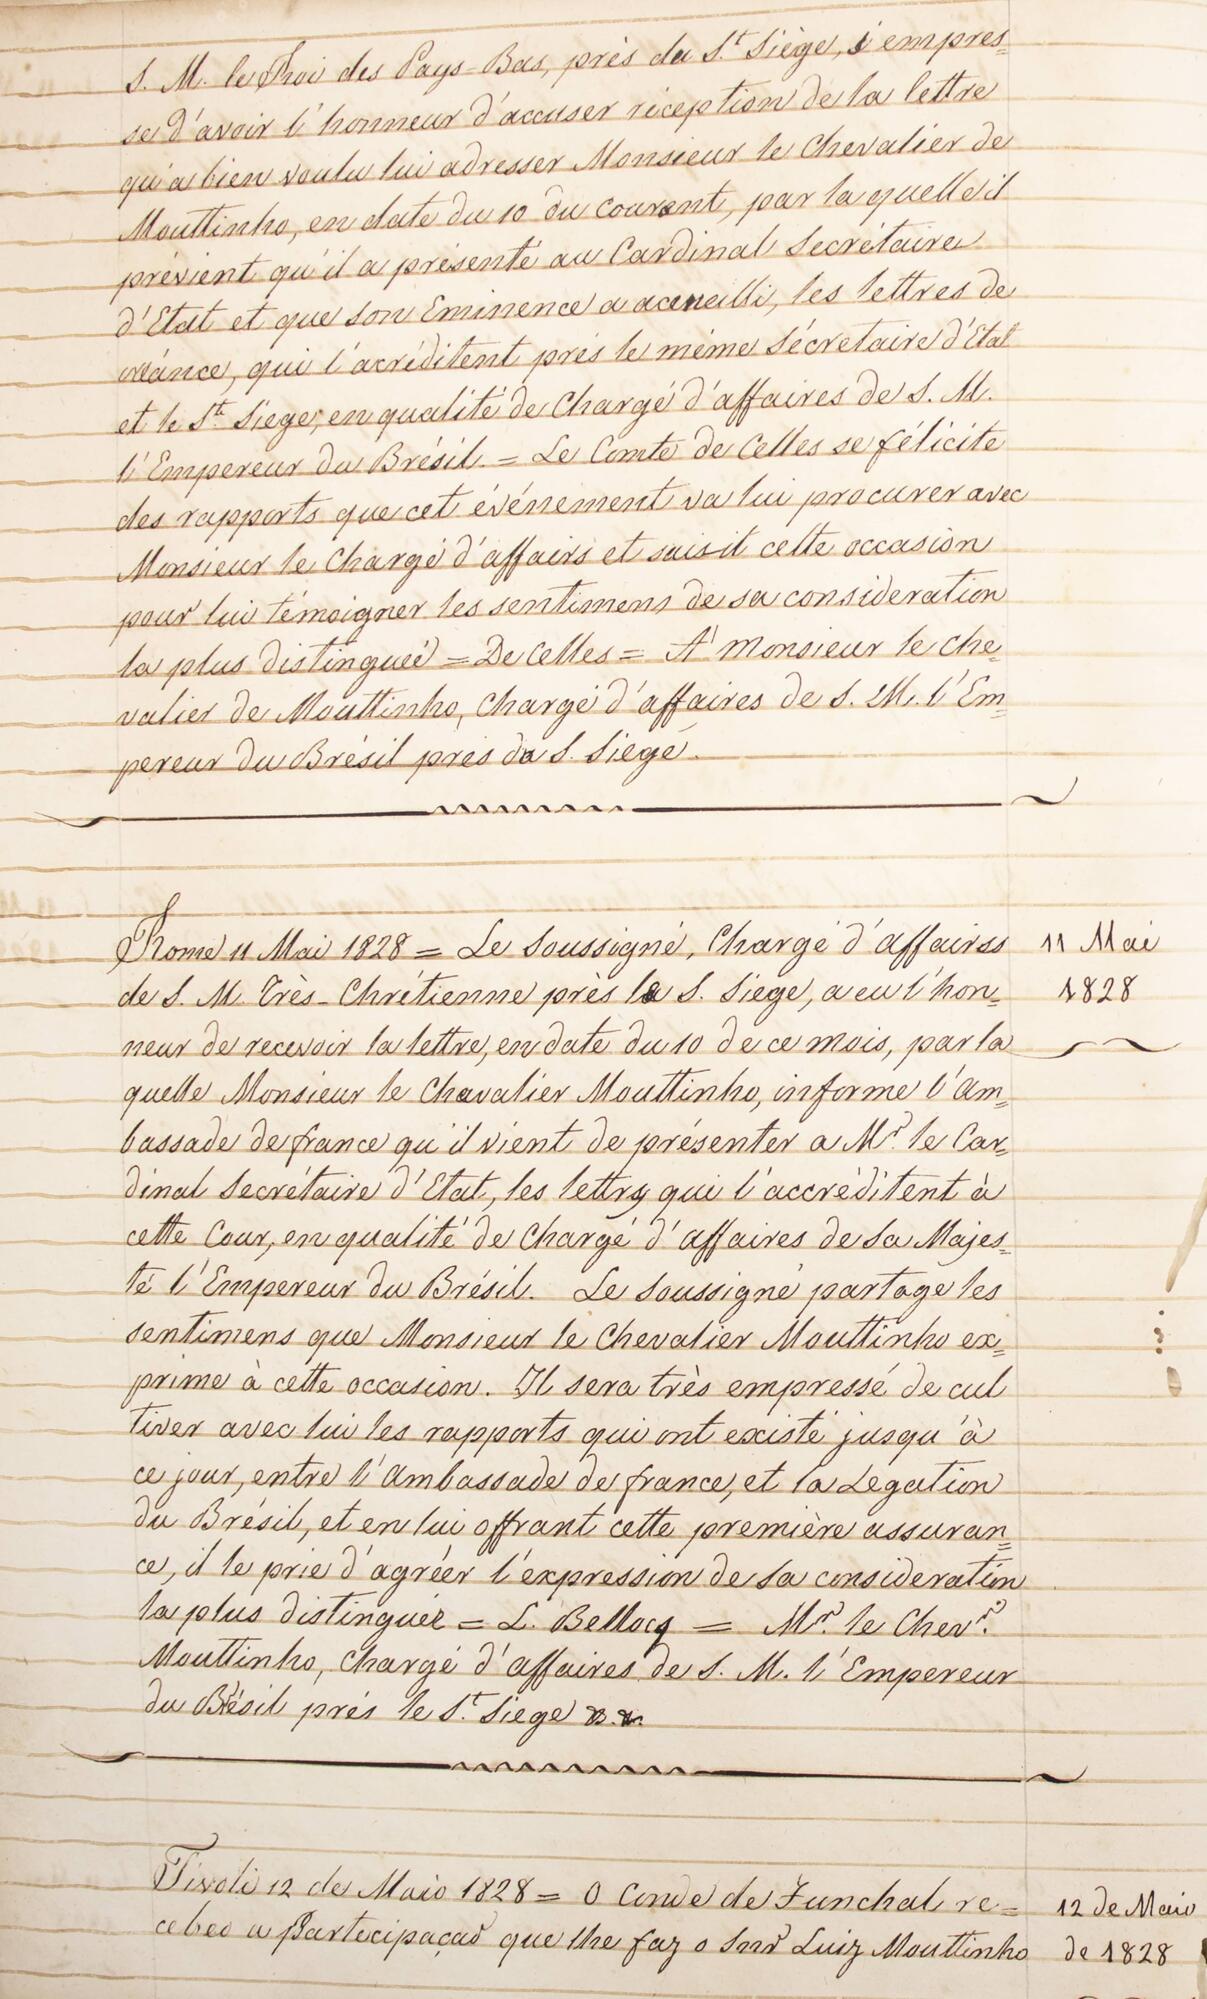 S. M. le Roi des Pays-Bas, près du S.t Siège, s'empres=
se d'avoir l'honneur d'accuser réception de la lettre
qu'a bien voulu lui adresser Monsieur le Chevalier de
Mouttinho, en date du 10 du courent, par la quelle il
prévient qu'il a présenté au Cardinal Secrétaire
d'Etat et que son Eminence a aceueilli, les lettres de
créance, qui l'acréditent près le même Sécretaire d'Etat
et le S.t Siege, en qualité de Chargé d'affaires de S. M.
l'Empereur du Brésil. = Le Comte de Celles se félicite
des rapports que cet événement va lui procurer avec
Monsieur le Chargé d'affairs et saisit cette occasion
pour lui témoigner les sentimens de sa consideration
la plus distinguée = De Celles = A' Monsieur le Che=
valier de Mouttinho, Chargé d'affaires de S. M. l'Em=
pereur du Brésil près do S. Siegé.
Rome 11 Mai 1828 = Le Soussigné, Chargé d'affaires
11 Mai
de S. M. Très-Chrétienne près le S. Siege, a eu l'hon=
1828
neur de recevoir la lettre, en date du 10 de ce mois, par la
quelle Monsieur le Chavalier Mouttinho, informe l'Am=
bassade de france qu'il vient de présenter a M.r le Car=
dinal Secrétaire d'Etat, les lettrs qui l'accréditent à
cette Cour, en qualité de Chargé d'affaires de Sa Majes=
té l'Empereur du Brésil. Le Soussigné partage les
sentimens que Monsieur le Chevalier Mouttinho ex=
prime à cette occasion. Il sera très empressé de cul
tiver avec lui les rapports qui ont existé jusqu'à
ce jour, entre l'Ambassade de france, et la Legation
du Brésil, et en lui offrant cette première assuran=
ce, il le prie d'agréer l'expression de Sa consideration
la plus distinguée = L. Bellocq = M.r le Chev.r
Mouttinho, Chargé d'affaires de S. M. l'Empereur
du Brésil prés le S.t Siege
Tivoli 12 de Maio 1828 = O Conde de Funchal re=
12 de Maio
cebeo a Partecipaçaõ que lhe faz o Snr Luiz Mouttinho
de 1828